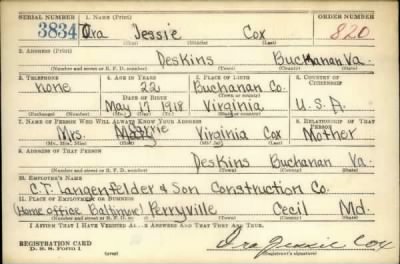 SERIAL NUMBER 1. NAME (Print) ORDER NUMBER
3834 Ora Jessie Cox 820
(First) (Middle) (Last)
2. ADDRESS (Print)
Deskins Buchanan Va.
(Number and street or R. F. D. number) (Town) (County) (State)
3. TELEPHONE 4. AGE IN YEARS 5. PLACE OF BIRTH 6. COUNTRY OF CITIZENSHIP
none 22 Buchanan Co.
DATE OF BIRTH (Town or county)
May 17 1918 Virginia U.S.A.
(Exchange) (Number) (Mo.) (Day) (Yr.) (State or country)
7. NAME OF PERSON WHO WILL ALWAYS KNOW YOUR ADDRESS 8. RELATIONSHIP OF THAT PERSON
Mrs. Virginia Cox Mother
(Mr., Mrs., Miss) (First) (Middle) (Last)
9. ADDRESS OF THAT PERSON
Deskins Buchanan Va.
(Number and street or R. F. D. number) (Town) (County) (State)
10. EMPLOYER'S NAME
C.J. Langenfelder & Son Construction Co.
11. PLACE OF EMPLOYMENT OR BUSINESS
(Home office Baltimore) Perryville Cecil Md.
(Number and street or R. F. D. number) (Town) (County) (State)
I AFFIRM THAT I HAVE VERIFIED ABOVE ANSWERS AND THAT THEY ARE TRUE.
REGISTRATION CARD
D. S. S. Form 1 (over) Ora Jessie Cox